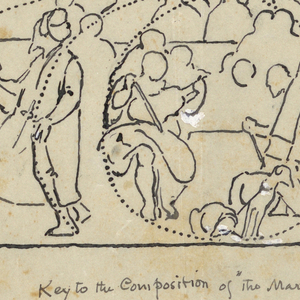 Key to the Composition of "the Mar